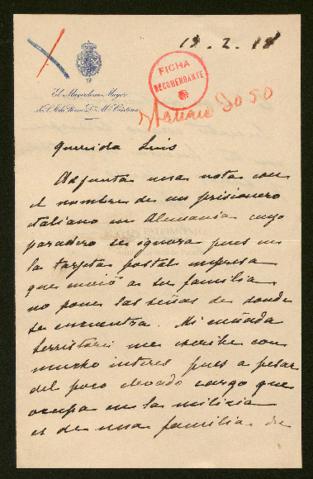 19.2.18
FICHA
RECOMENDANTE
El Mayordomo Mayor
de S.M. la Reina Dª Mª Cristina
3050
Querido Luis
Adjunta una nota con
el nombre de un prisionero
italiano en Alemania cuyo
paradero se ignora pues en
la tarjeta postal impresa
que envió a su familia
no pone las señas de donde
se encuentra. Mi cuñada
me escribe con
mucho interes pues a pesar
del poco elevado cargo que
ocupa en la milicia
es de una familia de